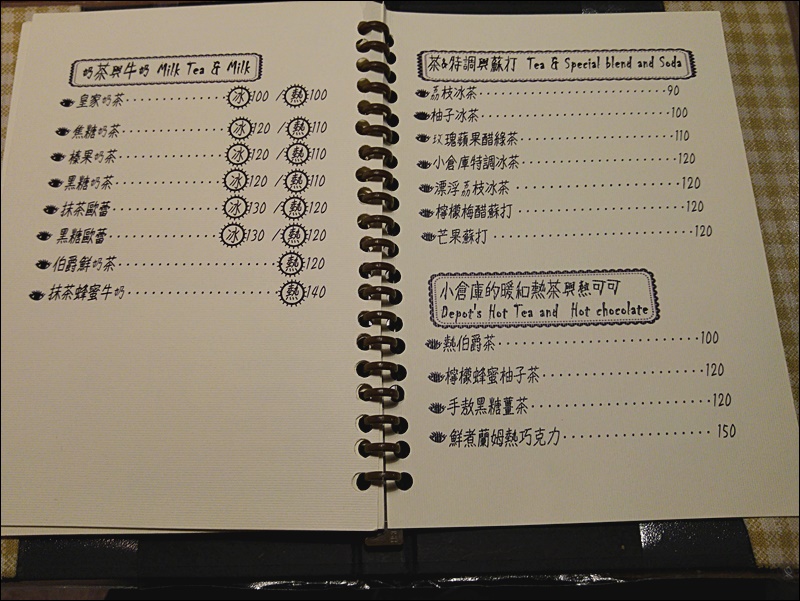 奶茶與牛奶 Milk Tea & Milk
皇家奶茶 冰 100 / 熱 100
焦糖奶茶 冰 120 / 熱 110
榛果奶茶 冰 120 / 熱 110
黑糖奶茶 冰 120 / 熱 110
抹茶歐蕾 冰 130 / 熱 120
黑糖歐蕾 冰 130 / 熱 120
伯爵鮮奶茶 熱 120
抹茶蜂蜜牛奶 熱 140
茶&特調與蘇打 Tea & Special blend and Soda
荔枝冰茶 90
柚子冰茶 100
玫瑰蘋果醋綠茶 110
小倉庫特調冰茶 120
漂浮荔枝冰茶 120
檸檬梅醋蘇打 120
芒果蘇打 120
小倉庫的暖和熱茶與熱可可
Depot's Hot Tea and Hot chocolate
熱伯爵茶 100
檸檬蜂蜜柚子茶 120
手敖黑糖薑茶 120
鮮煮蘭姆熱巧克力 150